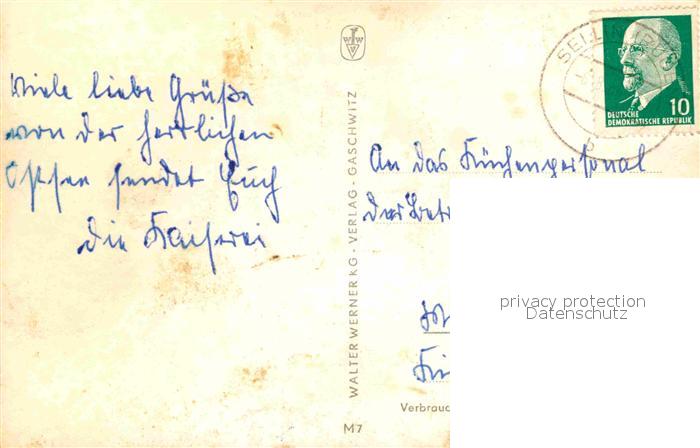 Viele liebe Grüße
von der herrlichen
Ostsee sendet Euch
die
WALTER WERNER KG · VERLAG · GASCHWITZ
M7
SELLIN
10
DEUTSCHE
DEMOKRATISCHE REPUBLIK
An das Küchenpersonal
der
privacy protection
Datenschutz
Verbrauc